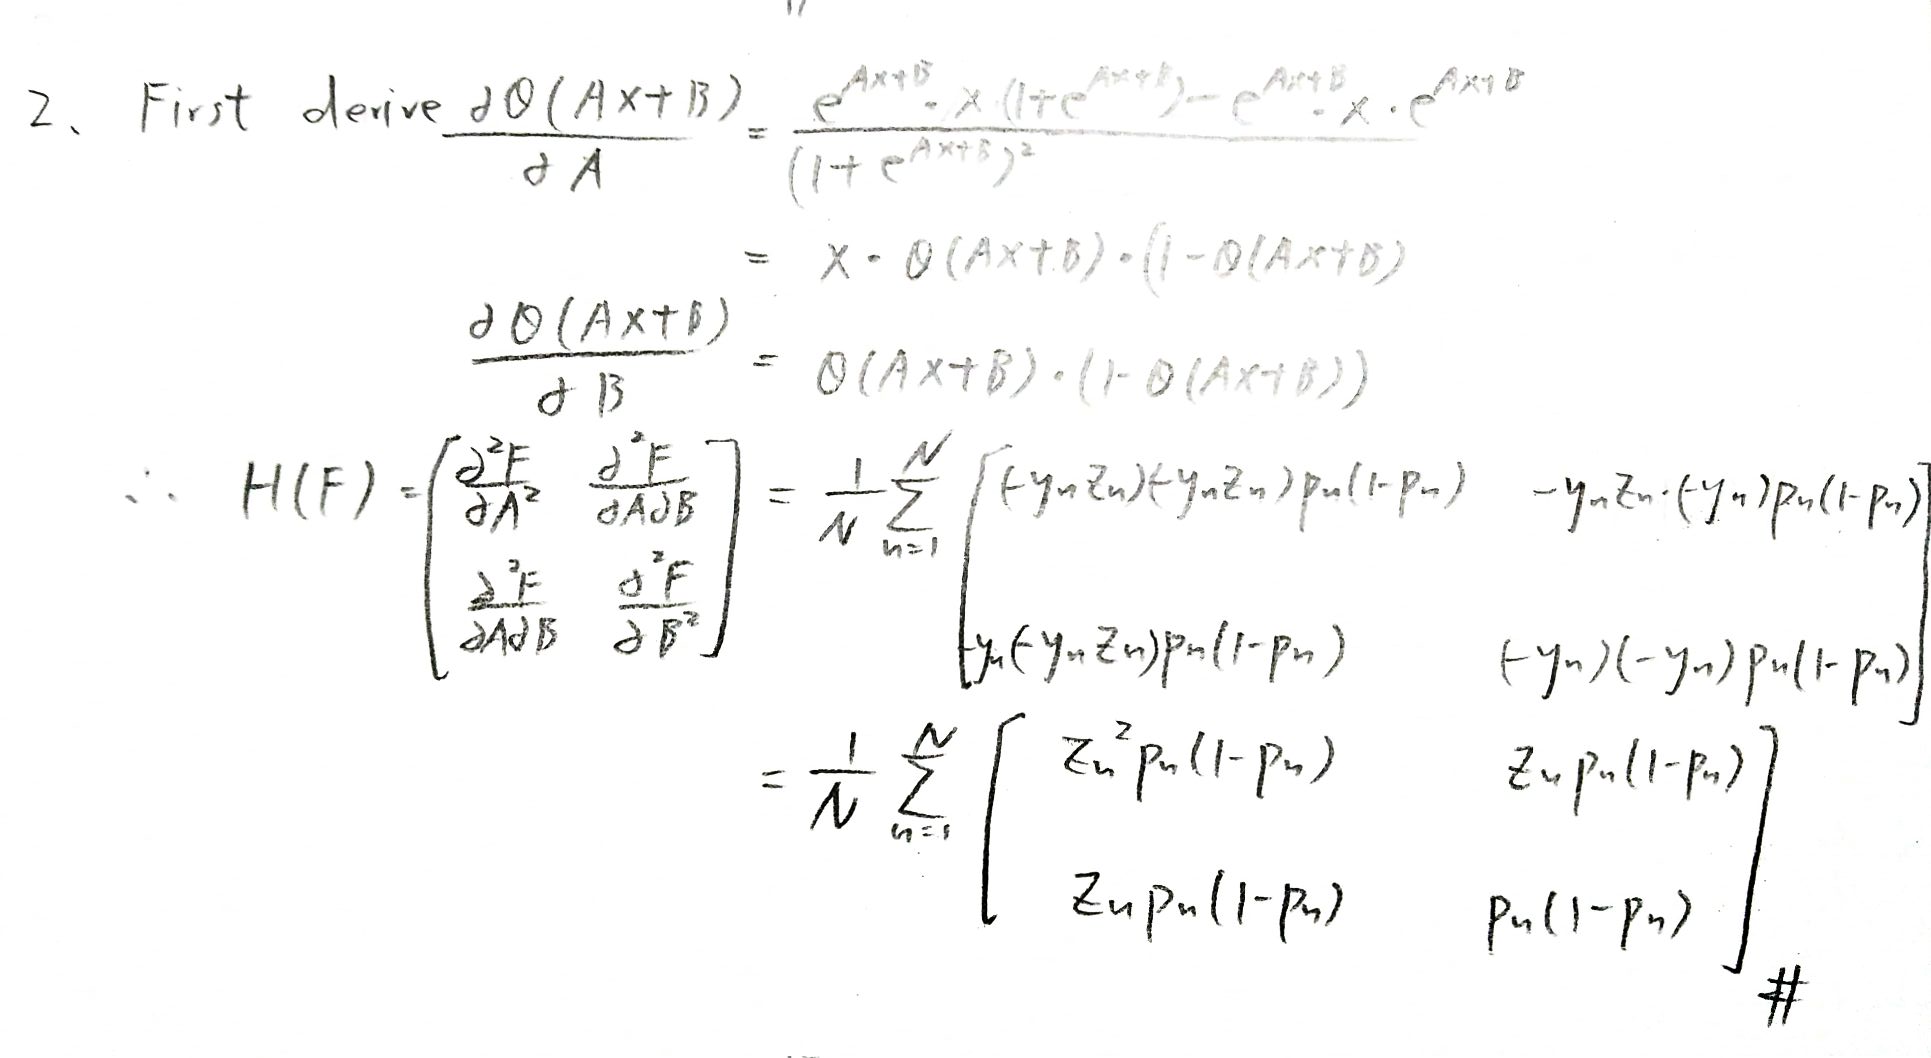 2、 First derive ∂θ(Ax+B)/∂A = (e^{Ax+B}·x·(1+e^{Ax+B}) - e^{Ax+B}·x·e^{Ax+B})/(1+e^{Ax+B})²
= x·θ(Ax+B)·(1-θ(Ax+B)
∂θ(Ax+B)/∂B = θ(Ax+B)·(1-θ(Ax+B))
∴ H(F) = [∂²F/∂A² ∂²F/∂A∂B; ∂²F/∂A∂B ∂²F/∂B²] = 1/N Σ_{n=1}^{N} [(-yₙzₙ)(-yₙzₙ)pₙ(1-pₙ) -yₙzₙ·(-yₙ)pₙ(1-pₙ); -yₙ(-yₙzₙ)pₙ(1-pₙ) (-yₙ)(-yₙ)pₙ(1-pₙ)]
= 1/N Σ_{n=1}^{N} [zₙ²pₙ(1-pₙ) zₙpₙ(1-pₙ); zₙpₙ(1-pₙ) pₙ(1-pₙ)] #